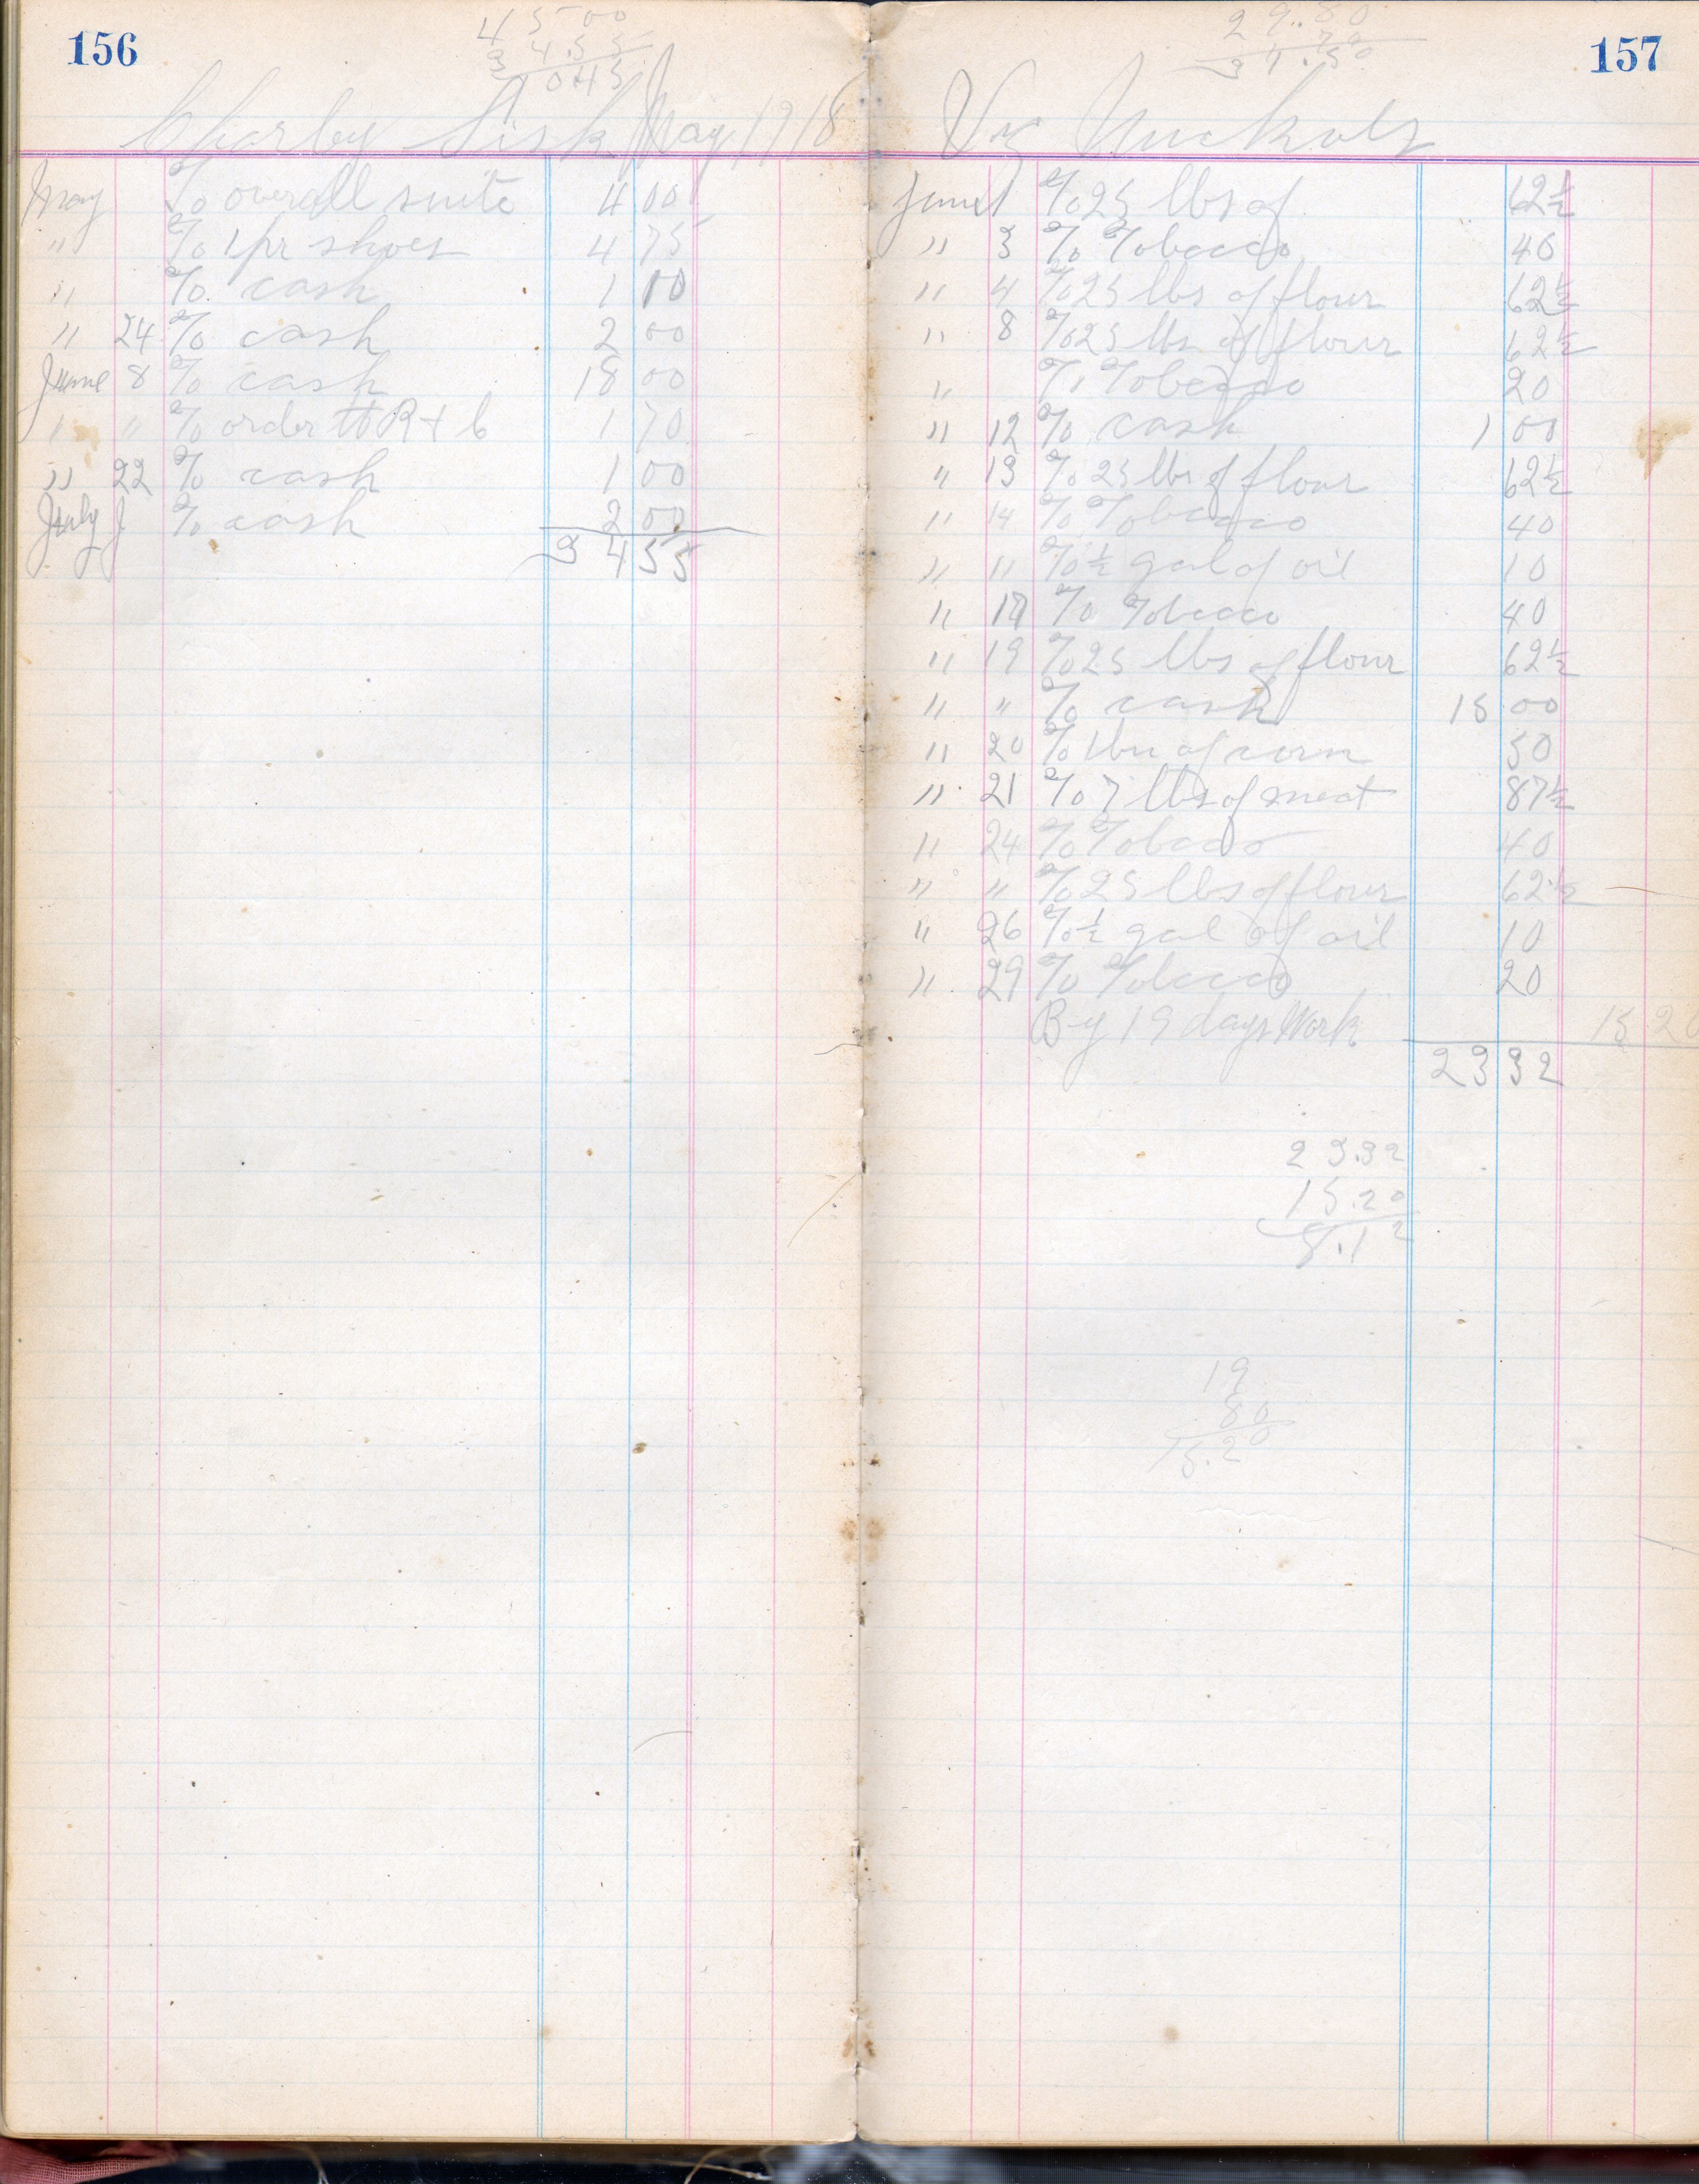 156
45 00
34.55
10 45
Charley Sisk May 1918
May % overall suite 4 00
" % 1 pr shoes 4 75
" % cash 1 10
" 24 % cash 2 00
June 8 % cash 18 00
" " % order to R + C 1 70
" 22 % cash 1 00
July % cash 2 00
34 55
157
29.80
31.50
Nuckols
June 1 % 25 lbs of 62½
" 3 % Tobacco 40
" 4 % 25 lbs of flour 62½
" 8 % 25 lbs of flour 62½
" % Tobacco 20
" 12 % cash 1 00
" 13 % 25 lbs of flour 62½
" 14 % Tobacco 40
" " % ½ gal of oil 10
" 17 % Tobacco 40
" 19 % 25 lbs of flour 62½
" " % cash 15 00
" 20 % 1 bu of corn 50
" 21 % 7 lbs of meat 87½
" 24 % Tobacco 40
" " % 25 lbs of flour 62½
" 26 % ½ gal of oil 10
" 29 % Tobacco 20
By 19 days Work 15 20
23 32
23.32
15.20
8.12
19
80
15.20